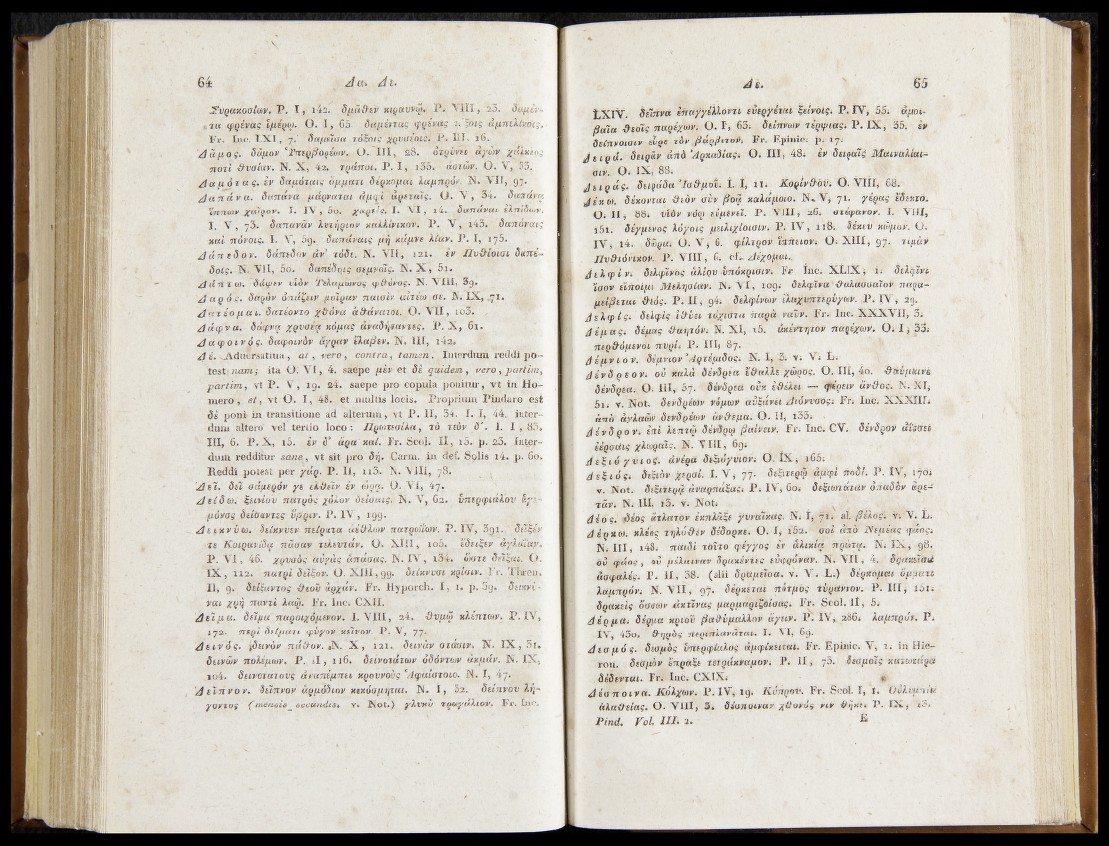 64 Δα. Δε.
Συρακοσίων. P. I, 142. δμᾶθεν κεραυνῷ. P. VIII, 23.
τα φρένας ἱμέρῳ. O. I, 65
Fr. Inc. LXI, 7. δαμεῖσα τόξοις χρυσέοις. P. III. 16.
Δᾶμος. δᾶμον Ὑπερβορέων. O. III, 28. ὀτρύνει ἀγὼν χάλκεος
ποτὶ θυσίαν. N. X, 42. τράποι. P. I, 135. ἀστῶν. O. V, 33.
Δαμότας. ἐν δαμόταις ὄμματι δέρκομαι λαμπρόν. N. VII, 97.
Δαπάνα. δαπάνᾳ μάρναται ἀμφὶ ἀρεταῖς. O. V, 34.
ἵππων χαῖρον. I. IV, 50. I. VI, 14. δαπάναι ἐλπίδων.
I. V, 73. δαπανᾶν λυτήριον καλλίνικον. P. V, 143. δαπάναις
καὶ πόνοις. I. V, 59. δαπάναις μὴ κάμνε λίαν. P. I, 175.
Δάπεδον. δάπεδον ἀν' τόδε. N. VII, 121. ἐν Πυθίοισι δαπέ-
δοις. N. VII, 50. δαπέδοις σεμνοῖς. N. X, 51.
Δάπτω. δάψεν υἱὸν Τελαμῶνος φθόνος. N. VIII, 39.
Δαρός. δαρὸν ὀπάζειν μοῖραν παισὶν αἰτέω σε. N. IX, 71.
Δατέομαι. δατέοντο χθόνα ἀθάνατοι. O. VII, 103.
Δάφνα. δάφνᾳ χρυσέᾳ κόμας ἀναδήσαντες. P. X, 61.
Δαφοινός. δαφοινὸν ἄγραν ἔλαβεν. N. III, 142.
Δέ. Aduersatiua, at, vero, contra, tamen. Interdum reddi po-
test nam; ita O. VI, 4. saepe μέν et δέ quidem, vero, partim,
partim, vt P. V, 19. 24. saepe pro copula ponitur, vt in Ho-
mero, et, vt O. I, 48. et multis locis. Proprium Pindaro est
δέ poni in transitione ad alterum, vt P. II, 34. I. I, 44. inter-
dum altero vel tertio loco: Πρωτεσίλα, τὸ τεὸν δ'. I. I, 83.
III, 6. P. X, 15. ἐν δ' ἄρα καί. Fr. Scol. II, 15. p. 23. Inter-
dum redditur sane, vt sit pro δή. Carm. in def. Solis 14. p. 60.
Reddi potest per γάρ. P. II, 113. N. VIII, 78.
Δεῖ. δεῖ σάμερόν γε ἐλθεῖν ἐν ὥρᾳ. O. VI, 47.
Δείδω. ξεινίου πατρὸς χόλον δείσαις. N. V, 62. ὑπερφιάλου ἁγε-
μόνος δείσαντες ὕβριν. P. IV, 199.
Δεικνύω. δείκνυεν πείρατα ἀέθλων πατρώϊων. P. IV, 391. δείξέν
τε Κοιρανίδᾳ πᾶσαν τελευτάν. O. XIII, 105. ἔδειξεν ἀγλαΐαν.
P. VI, 46. χρυσὸς αὐγὰς ἁπάσας. N. IV, 134. ὥστε δεῖξαι. O.
IX, 112. πατρὶ δεῖξον. O. XIII, 99. δείκνυσι κρίσιν. Fr. Thren.
II, 9. δείξαντος θεοῦ ἀρχάν. Fr. Hyporch. I, 1. p. 59. δεικνύ-
ναι χρὴ παντὶ λαῷ. Fr. Inc. CXII.
Δεῖμα. δεῖμα παροιχόμενον. I. VIII, 24. θυμῷ κλέπτων. P. IV,
172. περὶ δείματι φύγον κεῖνον P. V, 77.
Δεινός. δεινὸν πάθον. N. X, 121. δεινὰν στάσιν. N. IX, 31.
δεινῶν πολέμων. P. II, 116. δεινοτάτων ὀδόντων ἀκμάν. N. IX,
104. δεινοτάτους ἀναπέμπει κρουνοὺς Ἁφαίστοιο. N. I, 47.
Δεῖπνον. δεῖπνον ἁρμόδιον κεκόσμηται. N. I, 32. δείπνου λή-
γοντος (mensis secundis. v. Not.) γλυκὺ τρωγάλιον. Fr. Inc.
Δε. 65
LXIV. δεῖπνα ἐπαγγέλλοντι εὐεργέται ξείνοις. P. IV, 55. ἀμοι-
βαῖα θεοῖς παρέχων. O. I, 63. δείπνων τέρψιας. P. IX, 35. ἐν
δείπνοισιν εὗρε τὸν βάρβιτον. Fr. Epinic. p. 17.
Δειρά. δειρᾶν ἀπὸ Ἀρκαδίας. O. III, 48. ἐν δειραῖς Μαιναλίαι-
σιν. O. IX, 88.
Δειράς. δειράδα Ἰσθμοῦ. I. I, 11. Κορίνθου. O. VIII, 68.
Δέκω. δέκονται θεὸν σὺν βοᾷ καλάμοιο. N. V, 71. γέρας ἔδεκτο.
O. II, 88. υἱὸν νόῳ εὐμενεῖ. P. VIII, 26. στέφανον. I. VIII,
151. δέγμενος λόγοις μειλιχίοισιν. P. IV, 118. δέκευ κῶμον. O.
IV, 14. δῶρα. O. V, 6. φίλτρον ἵππειον. O. XIII, 97. τιμὰν
Πυθιόνικον. P. VIII, 6. cf. Δέχομαι.
Δελφίν. δελφῖνος ἁλίου ὑπόκρισιν. Fr. Inc. XLIX, 1. δελφῖνι
ἴσον εἴποιμι Μελησίαν. N. VI, 109. δελφῖνα θαλασσαῖον παρα-
μείβεται θεός. P. II, 94. δελφίνων ἐλαχυπτερύγων. P. IV, 29.
Δελφίς. δελφὶς ἰθύει τάχιστα παρὰ ναῦν. Fr. Inc. XXXVII, 3.
Δέμας. δέμας θαητόν. N. XI, 15. ἀκέντητον παρέχων. O. I, 33.
περθόμενοι πυρί. P. III, 87.
Δέμνιον. δέμνιον Ἀρτέμιδος. N. I, 3. v. V. L.
Δένδρεον. οὐ καλὰ δένδρεα ἔθαλλε χῶρος. O. III, 40. θαύμαινε
δένδρεα. O. III, 57. δένδρεα οὐκ ἐθέλει — φέρειν ἄνθος. N. XI,
51. v. Not. δενδρέων νόμων αὐξάνει Διόνυσος. Fr. Inc. XXXIII.
ἀπὸ ἀγλαῶν δενδρέων ἄνθεμα. O. II, 133.
Δένδρον. ἐπὶ λεπτῷ δένδρῳ βαίνειν. Fr. Inc. CV. δένδρον ἀΐσσει
ἐέρσαις χλωραῖς. N. VIII, 69.
Δεξιόγυιος. ἀνέρα δεξιόγυιον. O. IX, 165.
Δεξιός. δεξιὸν χερσί. I. V, 77. δεξιτερῷ ἀμφὶ ποδί. P. IV, 170.
v. Not. δεξιτερᾷ ἀναρπάξας. P. IV, 60. δεξιωτάταν ὀπαδὸν ἀρε-
τᾶν. N. III, 13. v. Not.
Δέος. δέος ἄτλατον ἐκπλᾶξε γυναῖκας. N. I, 71. al. βέλος. v. V. L.
Δέρκω. κλέος τηλόθεν δέδορκε. O. I, 152. σοὶ ἀπὸ Νεμέας φάος.
N. III, 148. παιδὶ τοῦτο φέγγος ἐν ἁλικίᾳ πρώτᾳ. N. IX, 98.
οὐ φάος, οὐ μέλαιναν δρακέντες εὐφρόναν. N. VII, 4. δρακεῖσ'
ἀσφαλές. P. II, 38. (alii δραμεῖσα. v. V. L.) δέρκομαι ὄμματι
λαμπρόν. N. VII, 97. δέρκεται πότμος τύραννον. P. III, 151.
δρακεὶς ὄσσων ἀκτῖνας μαρμαριζοίσας. Fr. Scol. II, 5.
Δέρμα. δέρμα κριοῦ βαθύμαλλον ἄγειν. P. IV, 286. λαμπρόν. P.
IV, 430. θηρὸς περιπλανᾶται. I. VI, 69.
Δεσμός. δεσμὸς ὑπερφίαλος ἀμφίκειται. Fr. Epinic. V, 1. in Hie-
ron. δεσμὸν ἔπραξε τετράκναμον. P. II, 73. δεσμοῖς κατωκάρα
δέδενται. Fr. Inc. CXIX.
Δέσποινα. Κόλχων. P. IV, 19. Κύπρου. Fr. Scol. I, 1. Οὐλυμπία
ἀλαθείας. O. VIII, 3. δέσποιναν χθονός νιν θῆκε. P. IX, 13.
Pind. Vol. III. 2. E